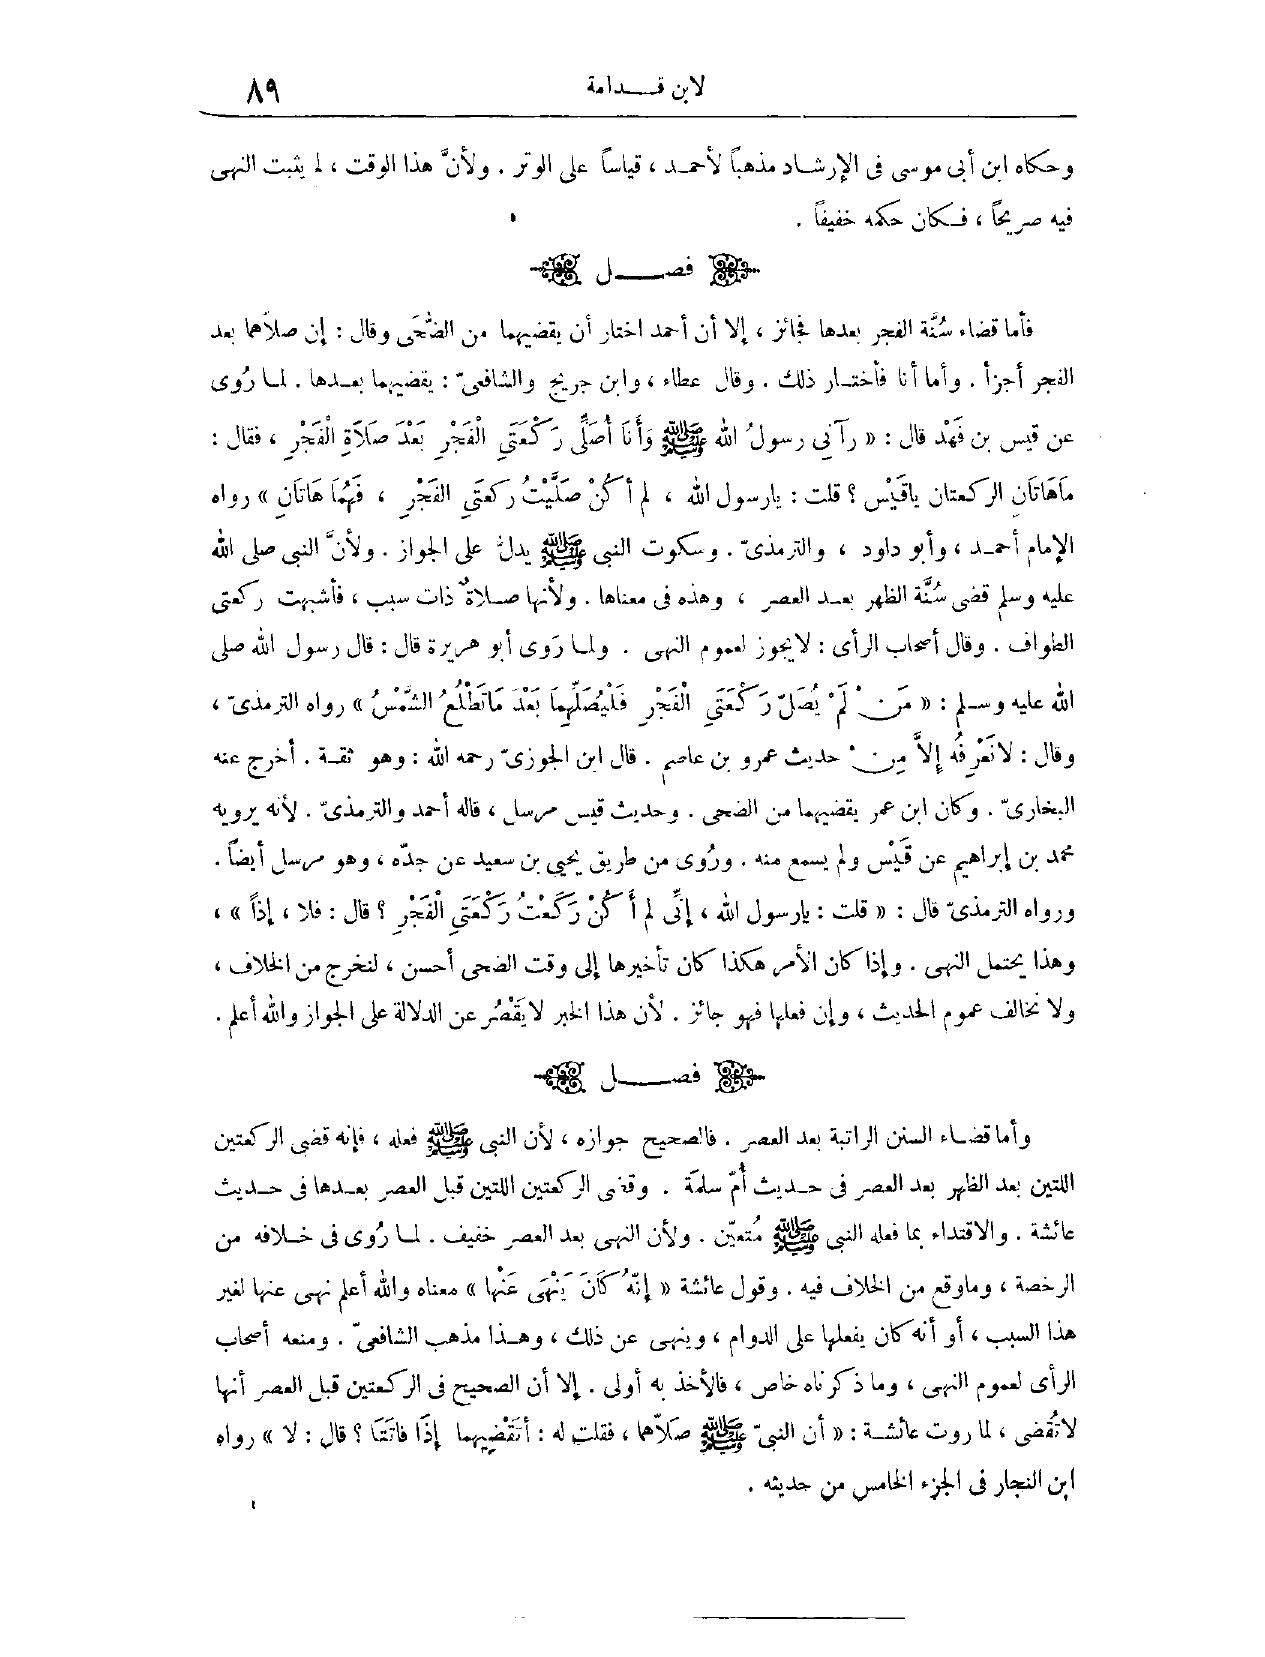 لابن قـدامة ٨٩
وحكاه ابن أبى موسى فى الإرشاد مذهباً لأحمد ، قياساً على الوتر . ولأنَّ هذا الوقت ، لم يثبت النهى
فيه صريحاً ، فكان حكمه خفيفاً .
فصل
فأما قضاء سُنَّة الفجر بعدها فجائز ، إلا أن أحمد اختار أن يقضيهما من الضُّحَى وقال : إن صلاَّهما بعد
الفجر أجزأ . وأما أنا فأختار ذلك . وقال عطاء ، وابن جريج والشافعىّ : يقضيهما بعدها . لما رُوى
عن قيس بن فَهْد قال : « رآنى رسولُ الله ﷺ وَأَنَا أُصَلِّى رَكْعَتَىِ الْفَجْرِ بَعْدَ صَلاَةِ الْفَجْرِ ، فقال :
مَاهَاتَانِ الركعتان ياقَيْس ؟ قلت : يارسول الله ، لم أكُنْ صَلَّيْتُ ركعتَىِ الفَجْرِ ، فَهُمَا هَاتَانِ » رواه
الإمام أحمد ، وأبو داود ، والترمذىّ . وسكوت النبى ﷺ يدلّ على الجواز . ولأنَّ النبى صلى الله
عليه وسلم قضى سُنَّة الظهر بعد العصر ، وهذه فى معناها . ولأنها صلاةٌ ذات سبب ، فأشبهت ركعتى
الطواف . وقال أصحاب الرأى : لايجوز لعموم النهى . ولما رَوى أبو هريرة قال : قال رسول الله صلى
الله عليه وسلم : « مَنْ لَمْ يُصَلّ رَكْعَتَىِ الْفَجْرِ فَلْيُصَلِّهِمَا بَعْدَ مَاتَطْلُعُ الشَّمْسُ » رواه الترمذىّ ،
وقال : لانَعْرِفُه إلاَّ مِنْ حديث عمرو بن عاصم . قال ابن الجوزىّ رحمه الله : وهو ثقة . أخرج عنه
البخارىّ . وكان ابن عمر يقضيهما من الضحى . وحديث قيس مرسل ، قاله أحمد والترمذىّ . لأنه يرويه
محمد بن إبراهيم عن قَيْس ولم يسمع منه . ورُوى من طريق يحيى بن سعيد عن جدّه ، وهو مرسل أيضاً .
ورواه الترمذىّ قال : « قلت : يارسول الله ، إنِّى لم أكُنْ رَكَعْتُ رَكْعَتَىِ الْفَجْرِ ؟ قال : فلا ، إذاً » ،
وهذا يحتمل النهى . وإذا كان الأمر هكذا كان تأخيرها إلى وقت الضحى أحسن ، لنخرج من الخلاف ،
ولا نخالف عموم الحديث ، وإن فعلها فهو جائز . لأن هذا الخبر لايَقْصُر عن الدلالة على الجواز والله أعلم .
فصل
وأما قضاء السنن الراتبة بعد العصر . فالصحيح جوازه ، لأن النبى ﷺ فعله ، فإنه قضى الركعتين
اللتين بعد الظهر بعد العصر فى حديث أُمّ سلمَة . وقضى الركعتين اللتين قبل العصر بعدها فى حديث
عائشة . والاقتداء بما فعله النبى ﷺ مُتعيّن . ولأن النهى بعد العصر خفيف . لما رُوى فى خلافه من
الرخصة ، وماوقع من الخلاف فيه . وقول عائشة « إنّهُ كَانَ يَنْهَى عَنْها » معناه والله أعلم نهى عنها لغير
هذا السبب ، أو أنه كان يفعلها على الدوام ، وينهى عن ذلك ، وهذا مذهب الشافعىّ . ومنعه أصحاب
الرأى لعموم النهى ، وما ذكرناه خاص ، فالأخذ به أولى . إلا أن الصحيح فى الركعتين قبل العصر أنها
لاتُقضى ، لما روت عائشة : « أن النبىّ ﷺ صَلاّهما ، فقلت له : أتَقْضِيهما إذَا فاتَتَا ؟ قال : لا » رواه
ابن النجار فى الجزء الخامس من حديثه .